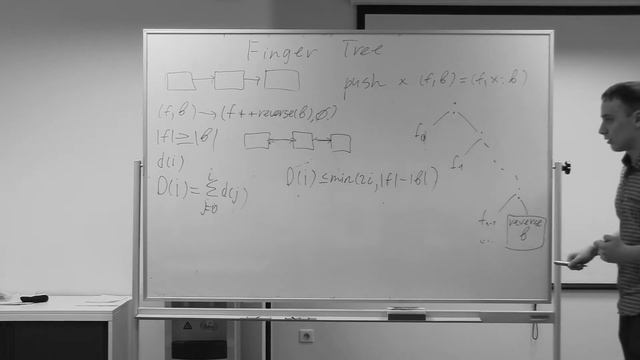 Finger Tree
push x (f,b) = (f,x:b)
(f,b) → (f++reverse(b),∅)
|f| ≥ |b|
d(i)
D(i) = Σ d(j)
i
j=0
D(i) ≤ min(2i, |f|-|b|)
f₀
f₁
fₙ₋₁
reverse
b